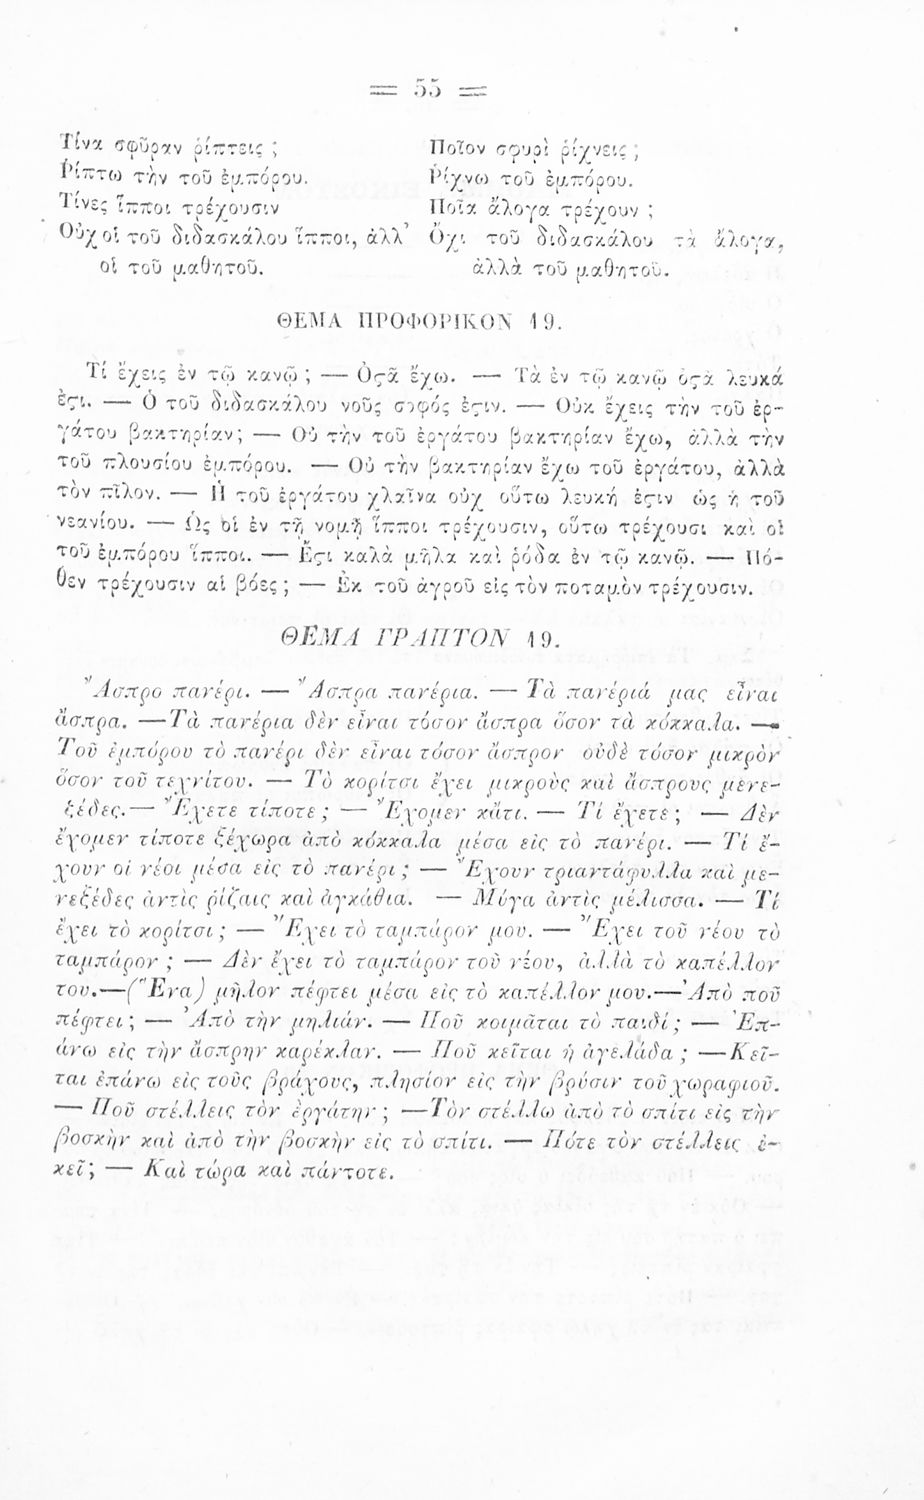 = 55 =
Τίνα σφῦραν ῥίπτεις ;
Ῥίπτω τὴν τοῦ ἐμπόρου.
Τίνες ἵπποι τρέχουσιν
Οὐχ οἱ τοῦ διδασκάλου ἵπποι, ἀλλ’
οἱ τοῦ μαθητοῦ.
Ποῖον σφυρὶ ῥίχνεις ;
Ῥίχνω τοῦ ἐμπόρου.
Ποῖα ἄλογα τρέχουν ;
Ὄχι τοῦ διδασκάλου τὰ ἄλογα,
ἀλλὰ τοῦ μαθητοῦ.
ΘΕΜΑ ΠΡΟΦΟΡΙΚΟΝ 19.
Τί ἔχεις ἐν τῷ κανῷ ; — Ὀϛᾶ ἔχω. — Τὰ ἐν τῷ κανῷ ὀϛᾶ λευκά
ἐϛι. — Ὁ τοῦ διδασκάλου νοῦς σοφός ἐϛιν. — Οὐκ ἔχεις τὴν τοῦ ἐρ-
γάτου βακτηρίαν; — Οὐ τὴν τοῦ ἐργάτου βακτηρίαν ἔχω, ἀλλὰ τὴν
τοῦ πλουσίου ἐμπόρου. — Οὐ τὴν βακτηρίαν ἔχω τοῦ ἐργάτου, ἀλλὰ
τὸν πῖλον. — Ἡ τοῦ ἐργάτου χλαῖνα οὐχ οὕτω λευκή ἐϛιν ὡς ἡ τοῦ
νεανίου. — Ὡς οἱ ἐν τῇ νομῇ ἵπποι τρέχουσιν, οὕτω τρέχουσι καὶ οἱ
τοῦ ἐμπόρου ἵπποι. — Ἔϛι καλὰ μῆλα καὶ ῥόδα ἐν τῷ κανῷ. — Πό-
θεν τρέχουσιν αἱ βόες ; — Ἐκ τοῦ ἀγροῦ εἰς τὸν ποταμὸν τρέχουσιν.
ΘΕΜΑ ΓΡΑΠΤΟΝ 19.
Ἄσπρο πανέρι. — Ἄσπρα πανέρια. — Τὰ πανέριά μας εἶναι
ἄσπρα. — Τὰ πανέρια δὲν εἶναι τόσον ἄσπρα ὅσον τὰ κόκκαλα. —
Τοῦ ἐμπόρου τὸ πανέρι δὲν εἶναι τόσον ἄσπρον οὐδὲ τόσον μικρὸν
ὅσον τοῦ τεχνίτου. — Τὸ κορίτσι ἔχει μικροὺς καὶ ἄσπρους μενε-
ξέδες. — Ἔχετε τίποτε ; — Ἔχομεν κἄτι. — Τί ἔχετε ; — Δὲν
ἔχομεν τίποτε ξέχωρα ἀπὸ κόκκαλα μέσα εἰς τὸ πανέρι. — Τί ἔ-
χουν οἱ νέοι μέσα εἰς τὸ πανέρι ; — Ἔχουν τριαντάφυλλα καὶ με-
νεξέδες ἀντὶς ῥίζαις καὶ ἀγκάθια. — Μύγα ἀντὶς μέλισσα. — Τί
ἔχει τὸ κορίτσι ; — Ἔχει τὸ ταμπάρον μου. — Ἔχει τοῦ νέου τὸ
ταμπάρον ; — Δὲν ἔχει τὸ ταμπάρον τοῦ νέου, ἀλλὰ τὸ καπέλλον
του. — (Ἕνα) μῆλον πέφτει μέσα εἰς τὸ καπέλλον μου. — Ἀπὸ ποῦ
πέφτει ; — Ἀπὸ τὴν μηλιάν. — Ποῦ κοιμᾶται τὸ παιδί ; — Ἐπ-
άνω εἰς τὴν ἄσπρην καρέκλαν. — Ποῦ κεῖται ἡ ἀγελάδα ; — Κεῖ-
ται ἐπάνω εἰς τοὺς βράχους, πλησίον εἰς τὴν βρύσιν τοῦ χωραφιοῦ.
— Ποῦ στέλλεις τὸν ἐργάτην ; — Τὸν στέλλω ἀπὸ τὸ σπίτι εἰς τὴν
βοσκὴν καὶ ἀπὸ τὴν βοσκὴν εἰς τὸ σπίτι. — Πότε τὸν στέλλεις ἐ-
κεῖ ; — Καὶ τώρα καὶ πάντοτε.